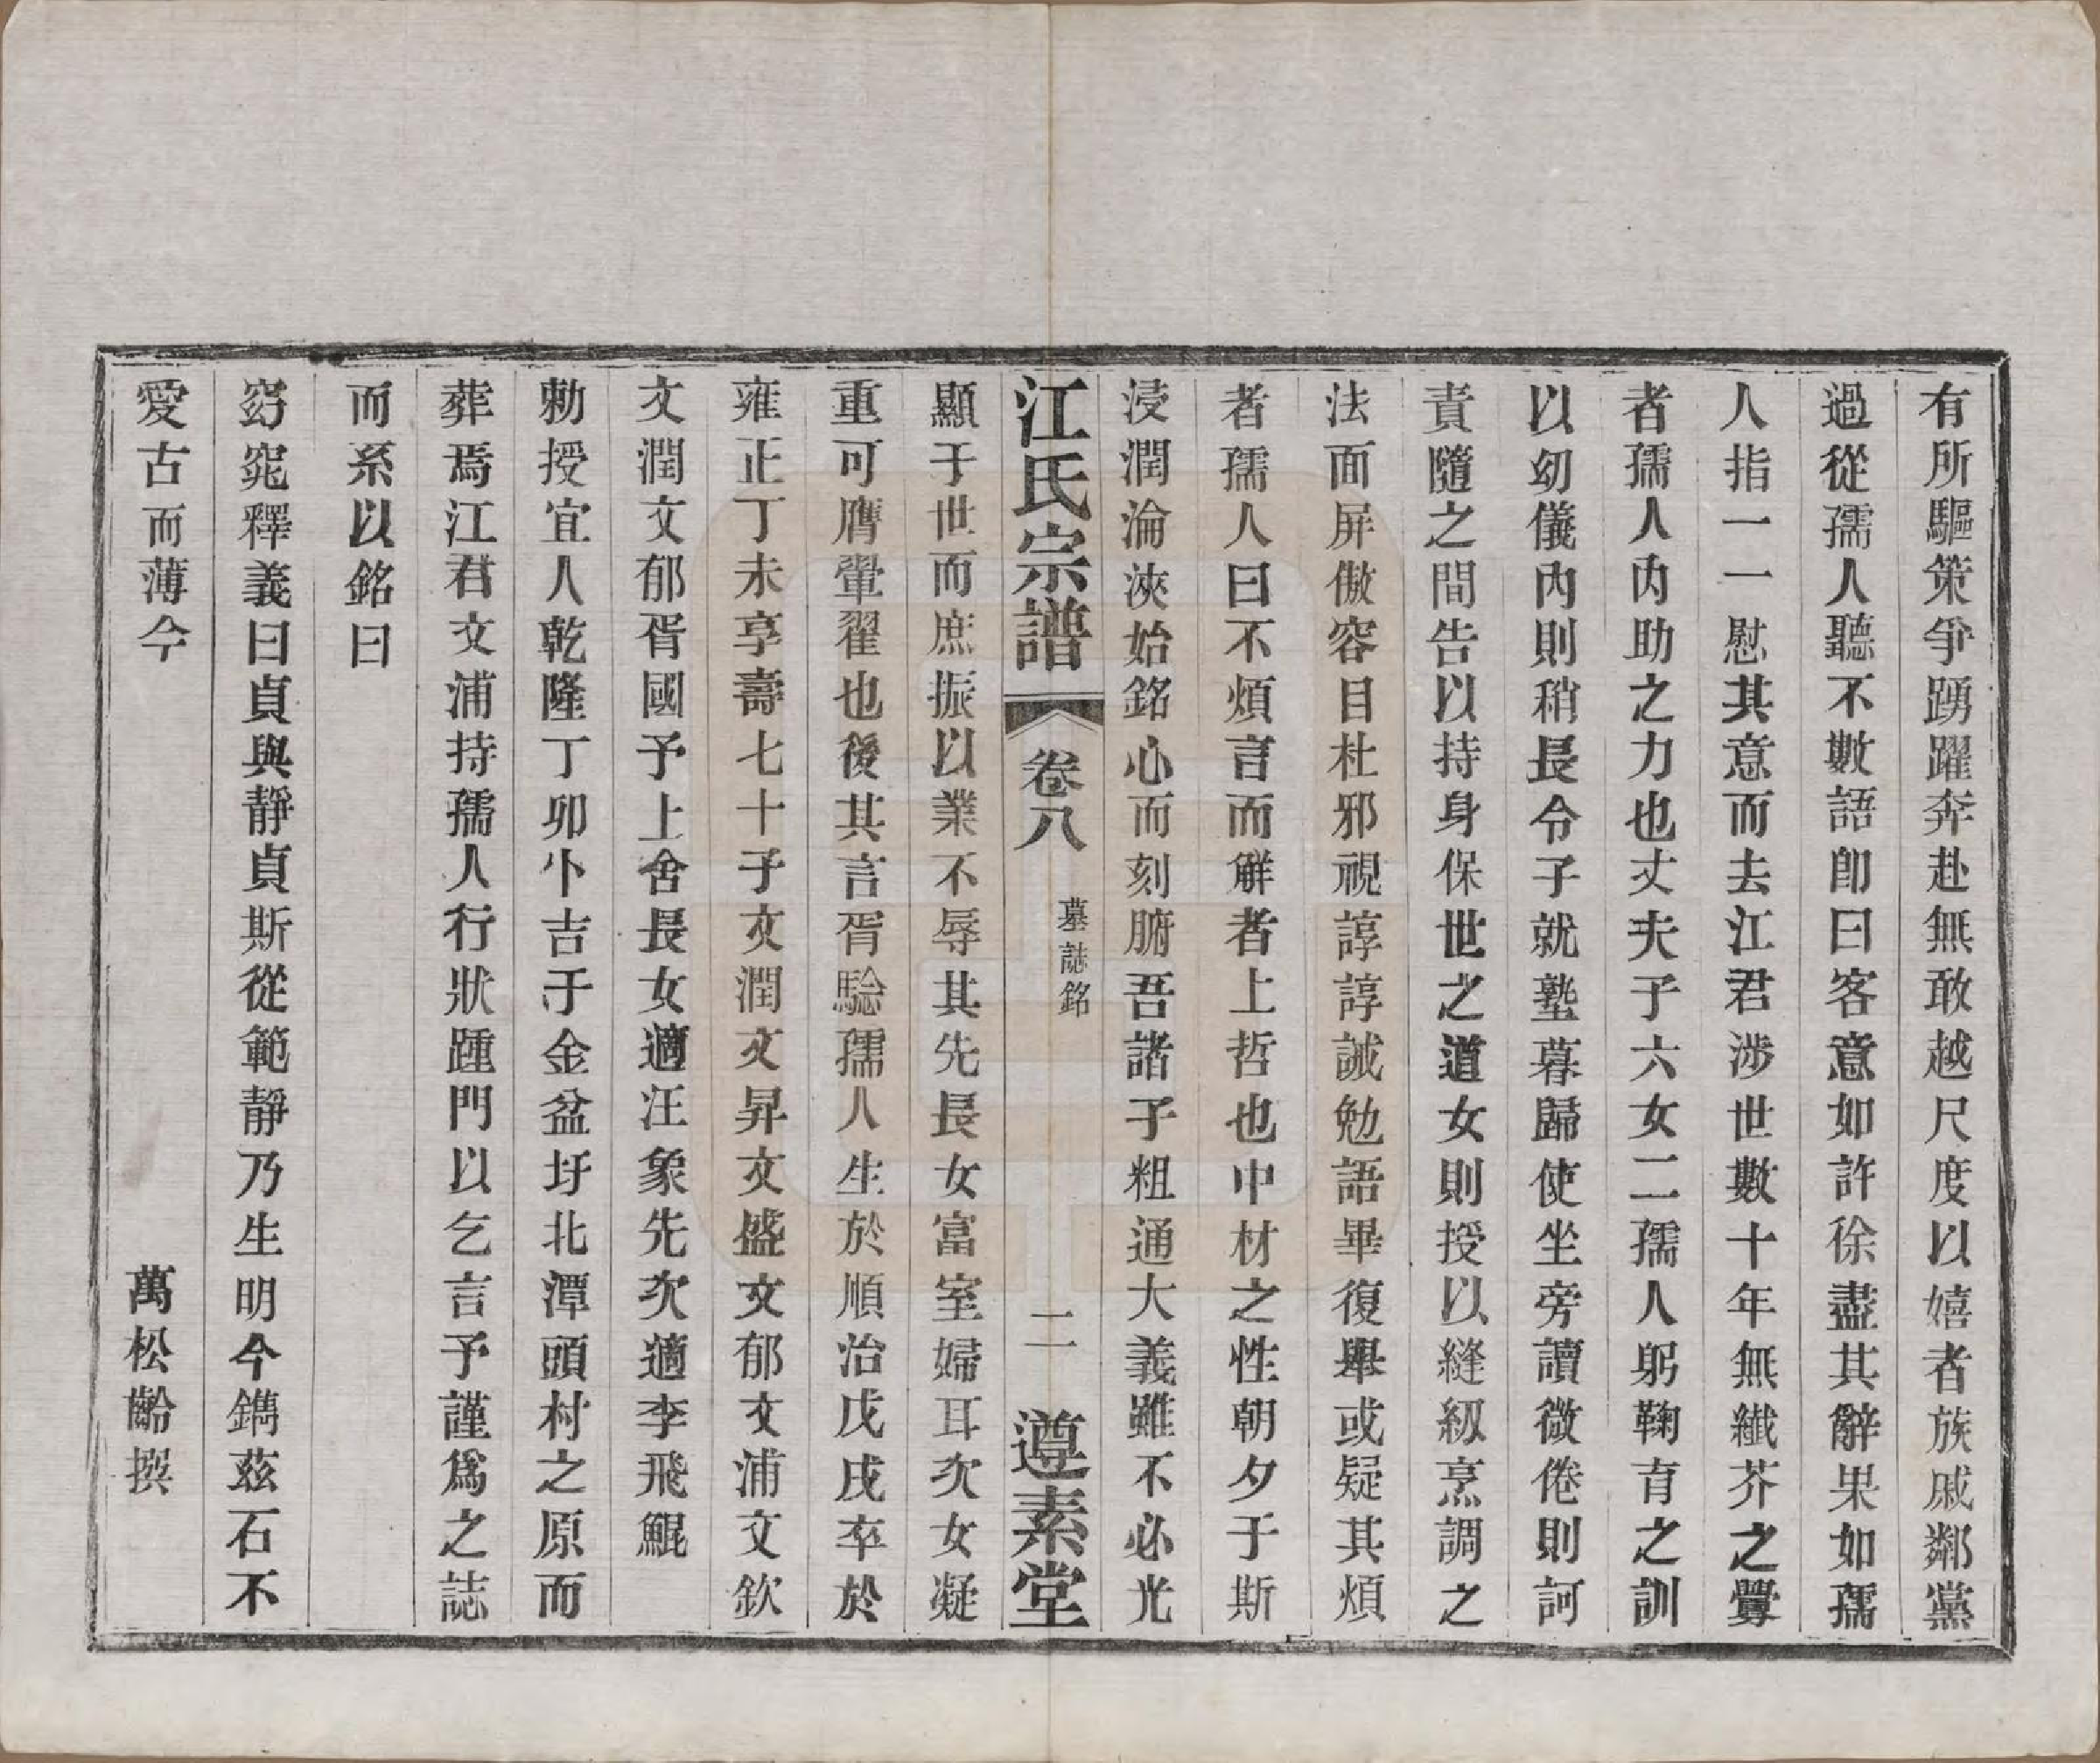 有所驅策爭踴躍奔赴無敢越尺度以嬉者族戚鄰黨
過從孺人聽不數語即曰客意如許徐盡其辭果如孺
人指一一慰其意而去江君涉世數十年無纖芥之釁
者孺人內助之力也丈夫子六女二孺人躬鞠育之訓
以幼儀內則稍長令子就塾暮歸使坐旁讀微倦則訶
責隨之間告以持身保世之道女則授以縫紉烹調之
法面屏傲容目杜邪視諄諄誡勉語畢復舉或疑其煩
者孺人曰不煩言而解者上哲也中材之性朝夕于斯
浸潤淪浹始銘心而刻腑吾諸子粗通大義雖不必光
江氏宗譜 卷八 墓誌銘 二 遵素堂
顯于世而庶振以業不辱其先長女富室婦耳次女凝
重可膺翬翟也後其言胥驗孺人生於順治戊戌卒於
雍正丁未享壽七十子文潤文昇文盛文郁文浦文欽
文潤文郁胥國予上舍長女適汪象先次適李飛鯤
勅授宜人乾隆丁卯卜吉于金盆圩北潭頭村之原而
葬焉江君文浦持孺人行狀踵門以乞言予謹爲之誌
而系以銘曰
窈窕釋義曰貞與靜貞斯從範靜乃生明今鐫茲石不
愛古而薄今
萬松齡撰